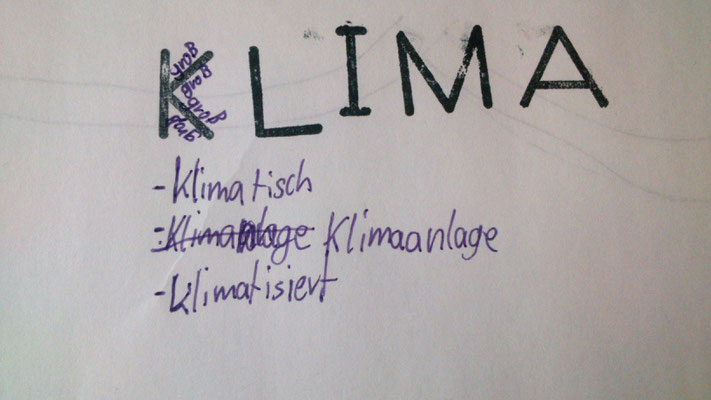 KLIMA
groß groß
groß groß
groß
- Klimatisch
- Klimanlage Klimaanlage
- Klimatisiert